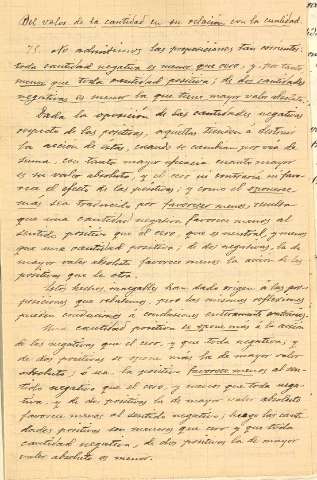 Del valor de la cantidad en su relacion con la cualidad.
75. No admitimos las proposiciones tan corrientes:
toda cantidad negativa es menor que cero, y, por tanto
menor que toda cantidad positiva; de dos cantidades
negativas es menor la que tiene mayor valor absoluto.
Dada la oposición de las cantidades negativas
respecto de las positivas, aquellas tienden á destruir
la acción de estas, cuando se combinan por vía de
suma, con tanto mayor eficacia cuanto mayor
es su valor absoluto, y el cero ni contraría ni favo-
rece el efecto de las positivas; y como el oponerse
más sea traducido por favorecer menos, resulta
que una cantidad negativa favorece menos al
sentido positivo que el cero, que es neutral, y menos
que una cantidad positiva; de dos negativas, la de
mayor valor absoluto favorece menos la acción de las
positivas que la otra.
Estos hechos, innegables han dado origen á las pro-
posiciones que rebatimos, pero las mismas reflexiones
pueden conducirnos á conclusiones enteramente
Una cantidad positiva se opone más á la acción
de las negativas que el cero, y que toda negativa, y
de dos positivas se opone más la de mayor valor
absoluto; ó sea: la positiva favorece menos al sen-
tido negativo que el cero, y menos que toda nega-
tiva, y de dos positivas la de mayor valor absoluto
favorece menos al sentido negativo; luego las canti-
dades positivas son menores que cero y que toda
cantidad negativa, de dos positivas la de mayor
valor absoluto es menor.